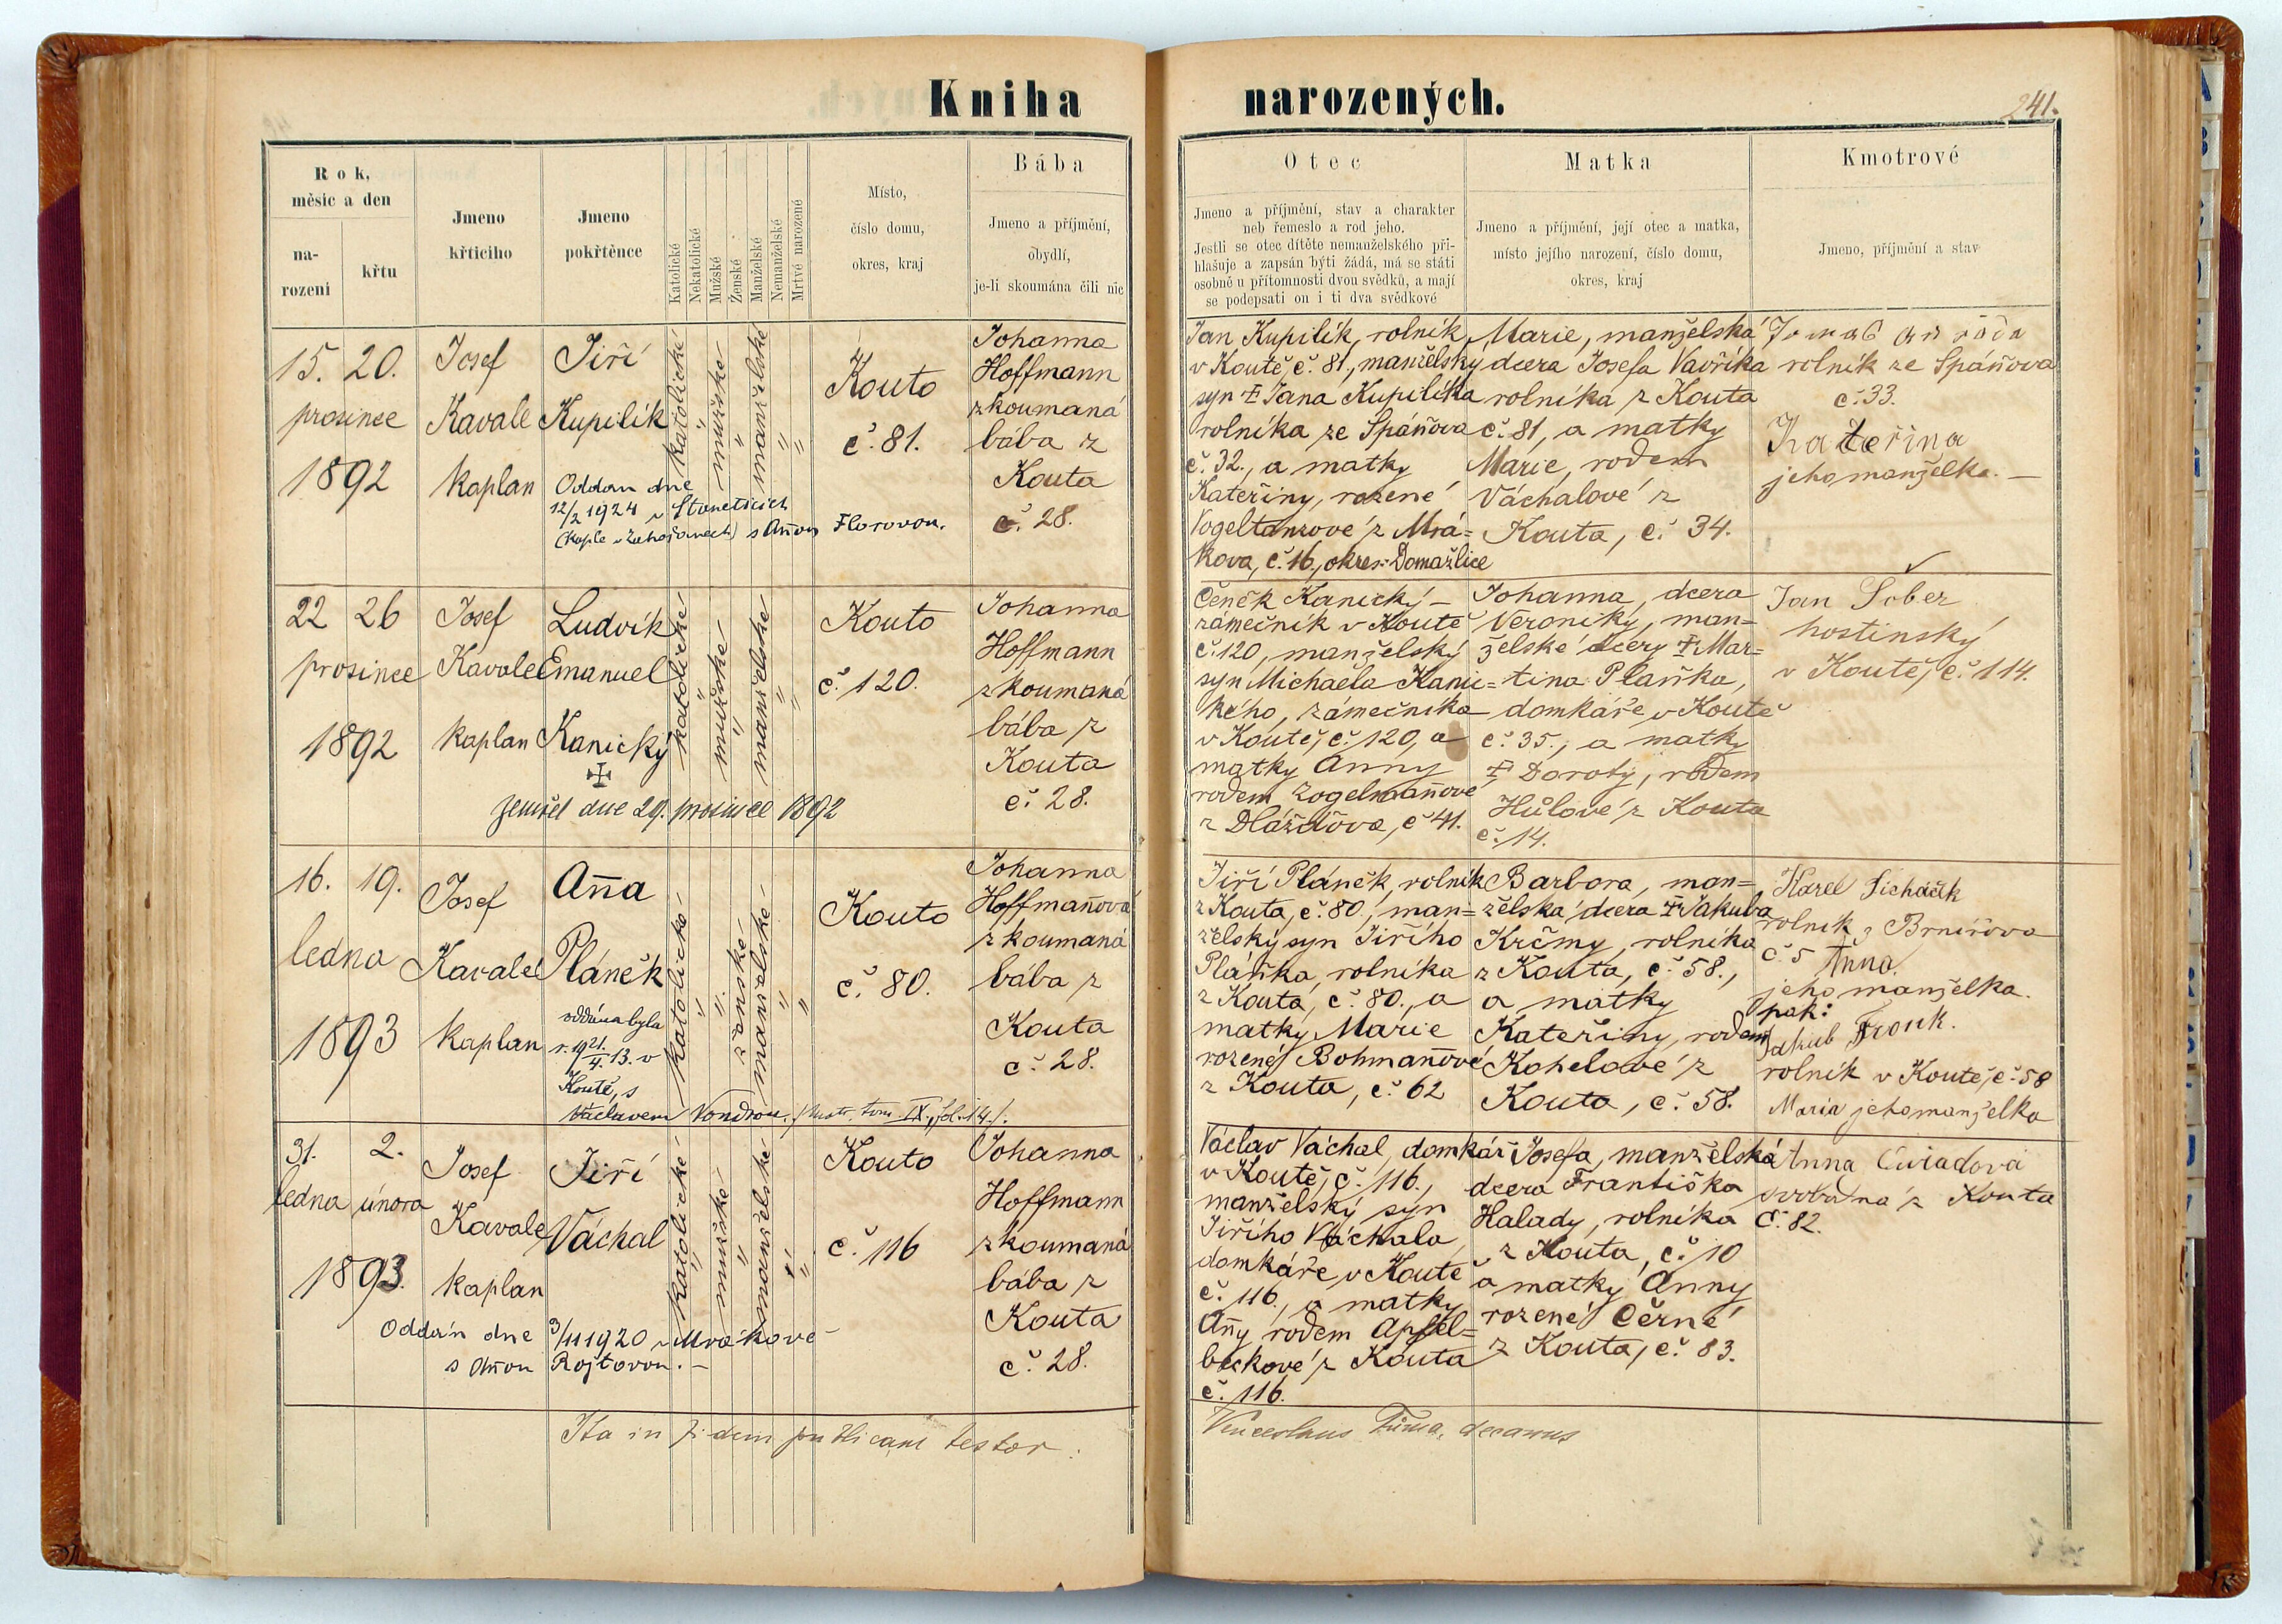 Kniha
narozených.
241.
Rok,
měsíc a den
na-
rození
křtu
Jmeno
křticího
Jmeno
pokřtěnce
Katolické
Nekatolické
Mužské
Ženské
Manželské
Nemanželské
Mrtvé narozené
Místo,
číslo domu,
okres, kraj
Bába
Jmeno a příjmění,
obydlí,
je-li skoumána čili nic
Otec
Jmeno a příjmění, stav a charakter
neb řemeslo a rod jeho.
Jestli se otec dítěte nemanželského při-
hlašuje a zapsán býti žádá, má se státi
osobně u přítomnosti dvou svědků, a mají
se podepsati on i ti dva svědkové
Matka
Jmeno a příjmění, její otec a matka,
místo jejího narození, číslo domu,
okres, kraj
Kmotrové
Jmeno, příjmění a stav
15. 20.
prosince
1892
Josef
Kavale
kaplan
Jiří
Kupilík
Oddán dne
12/2 1924 v Stanětících
(kaple v Zahořanech) s Annou Florovou.
katolické
"
mužské
"
manželské
"
"
Kouto
č. 81.
Johanna
Hoffmann
zkoumaná
bába z
Kouta
č. 28.
Jan Kupilík, rolník
v Koutě, č. 81, manželský
syn ‡ Jana Kupilíka
rolníka ze Spáňova
č. 32., a matky
Kateřiny, rozené
Vogeltanzové z Mrá=
kova, č. 16, okres Domažlice
Marie, manželská
dcera Josefa Vavříka
rolníka z Kouta
č. 81, a matky
Marie, rodem
Váchalové z
Kouta, č. 34.
rolník ze Spáňova
č. 33.
Kateřina
jeho manželka. —
22 26
prosince
1892
Josef
Kavale
kaplan
Ludvík
Emanuel
Kanický
zemřel dne 29. prosince 1892
katolické
"
mužské
"
manželské
"
"
Kouto
č. 120.
Johanna
Hoffmann
zkoumaná
bába z
Kouta
č. 28.
Čeněk Kanický —
zámečník v Koutě
č. 120, manželský
syn Michaela Kanic=
kého, zámečníka
v Koutě, č. 120, a
matky Anny
rodem Zogelmannové
z Dlážďova, č. 41.
Johanna, dcera
Veroniky, man=
želské dcery ‡ Mar=
tina Plaňka,
domkáře v Koutě
č. 35., a matky
‡ Doroty, rodem
Hůlové z Kouta
č. 14.
Jan Šober
hostinský
v Koutě, č. 114.
16. 19.
ledna
1893
Josef
Kavale
kaplan
Anna
Pláněk
oddána byla
r. 1921. 4. 13. v
Koutě, s
Václavem Vondrou. / Matr. tom. IX., fol. 14/.
katolické
"
"
ženské
manželské
"
"
Kouto
č. 80.
Johanna
Hoffmannová
zkoumaná
bába z
Kouta
č. 28.
Jiří Pláněk, rolník
z Kouta, č. 80, man=
želský syn Jiřího
Pláňka, rolníka
z Kouta, č. 80., a
matky Marie
rozené Bohmannové
z Kouta, č. 62
Barbora, man=
želská dcera ‡ Jakuba
Krčmy, rolníka
z Kouta, č. 58.,
a matky
Kateřiny, rodem
Kohelové z
Kouta, č. 58.
Karel
rolník z Brnířova
č. 5 Anna
jeho manželka.
pak:
Jakub Fronk.
rolník v Koutě, č. 58
Maria jeho manželka
31. 2.
ledna února
1893.
Josef
Kavale
kaplan
Jiří
Váchal
Oddán dne 3/11 1920 v Mrákově
s Annou Rojtovou. —
katolické
"
mužské
"
manželské
"
"
Kouto
č. 116
Johanna
Hoffmann
zkoumaná
bába z
Kouta
č. 28.
Václav Váchal, domkář
v Koutě, č. 116.,
manželský syn
Jiřího Váchala
domkáře v Koutě
č. 116., a matky
Anny rodem Apfel=
beckové z Kouta
č. 116.
Josefa, manželská
dcera Františka
Halady, rolníka
z Kouta, č. 10
a matky Anny
rozené Černé
z Kouta, č. 83.
Anna
svobodná z Kouta
č. 82.
Ita in fidem publicam testor.
Venceslaus Tůma, decanus